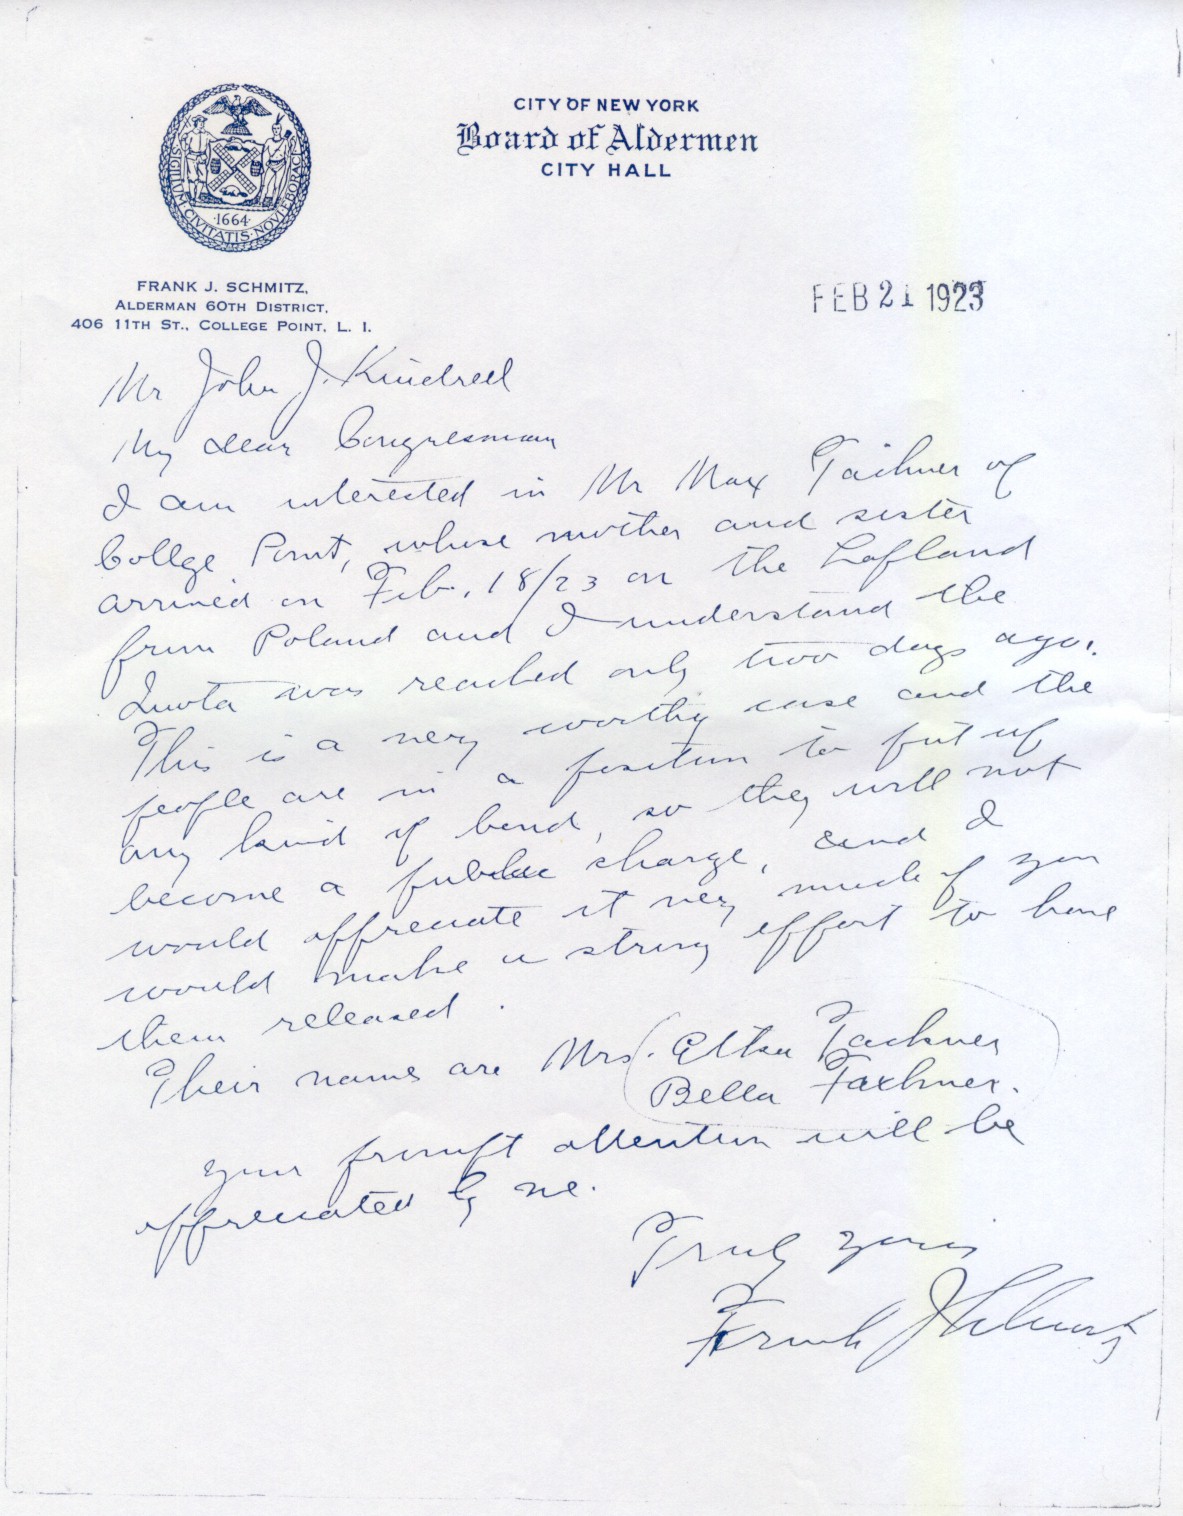 CITY OF NEW YORK
Board of Aldermen
CITY HALL
SIGILLUM CIVITATIS NOVI EBORACI
1664
FRANK J. SCHMITZ,
ALDERMAN 60TH DISTRICT,
406 11TH ST., COLLEGE POINT, L. I.
FEB 21 1923
Mr John J. Kindred
My dear Congresman
I am interested in Mr Max Taichner of
Collge Point, whose mother and sister
arrived on Feb. 18/23 on the Lafland
from Poland and I understand the
Quota was reached only two days ago.
This is a very worthy case and the
people are in a position to put up
any kind of bond, so they will not
become a public charge, and I
would appreciate it very much if you
would make a strong effort to have
them released.
Their names are Mrs. Etka Tachner
Bella Tachner.
your prompt attention will be
appreciated by me.
Truly yours
Frank J Schmitz